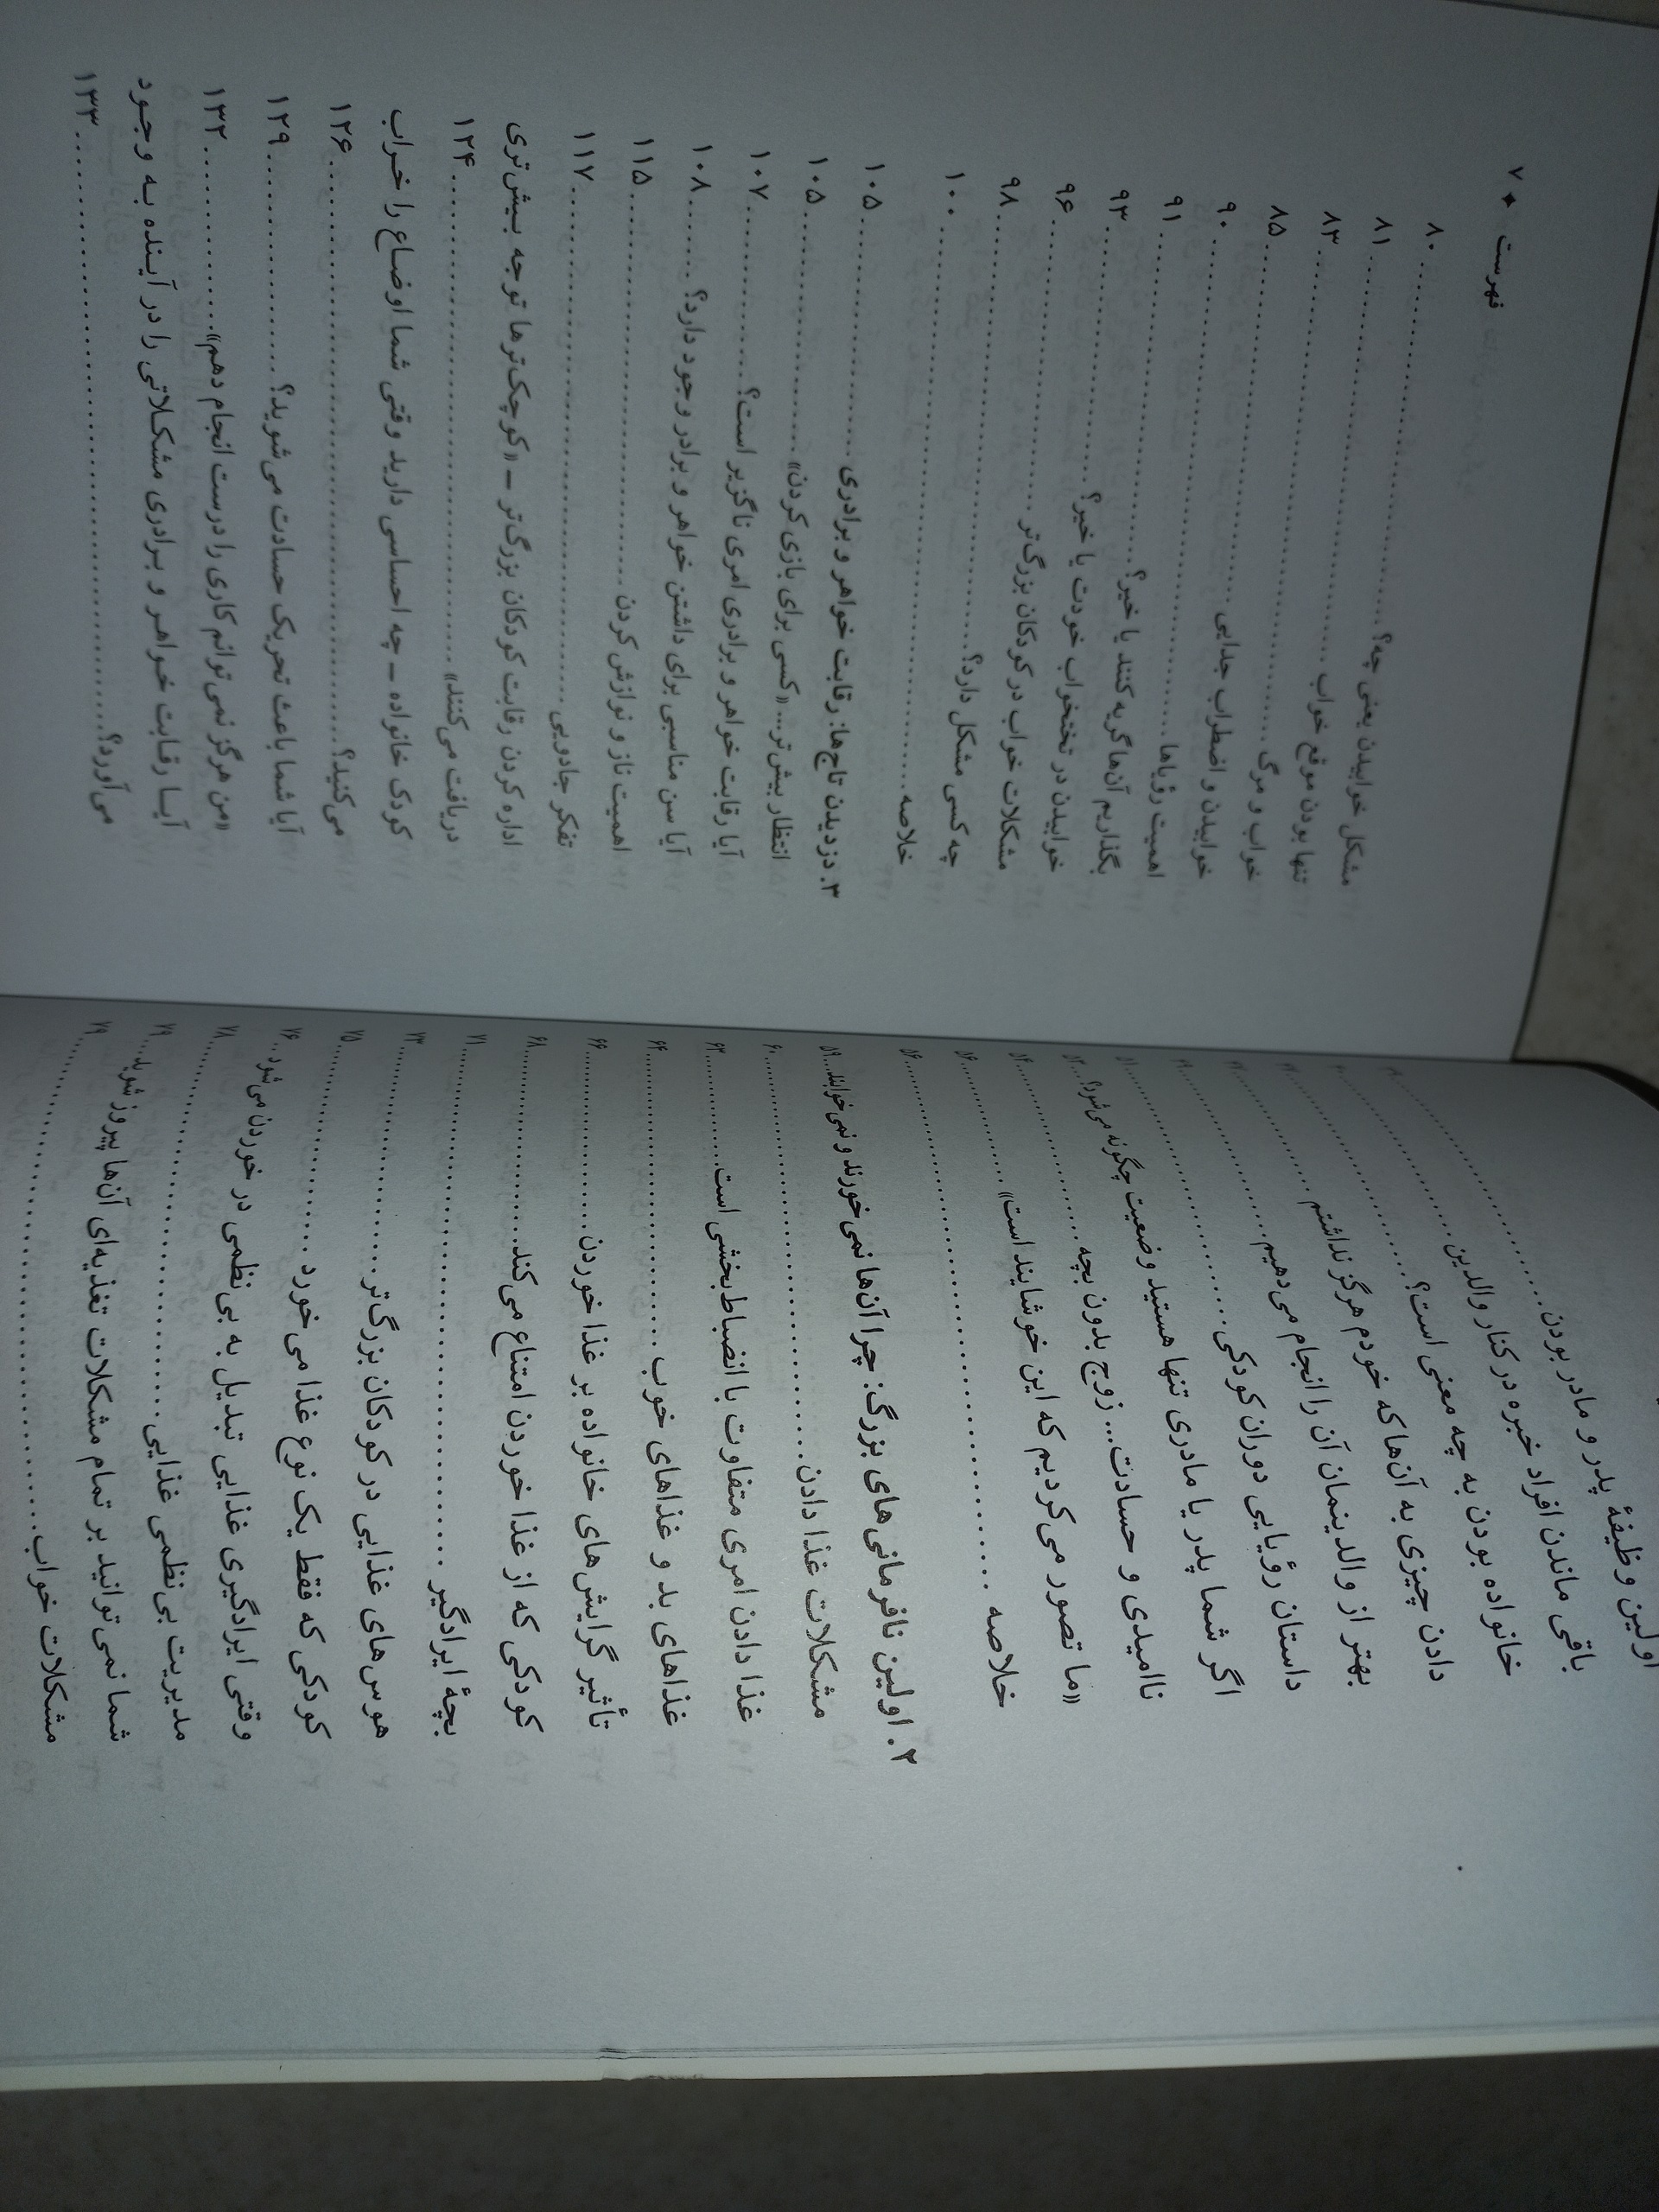 اولین وظیفهٔ پدر و مادر بودن
باقی ماندن افراد خبره در کنار والدین
خانواده بودن به چه معنی است؟
دادن چیزی به آن‌ها که خودم هرگز نداشتم
بهتر از والدینمان آن را انجام می‌دهیم
داستان رؤیایی دوران کودکی
اگر شما پدر یا مادری تنها هستید وضعیت چگونه می‌شود؟
ناامیدی و حسادت... زوج بدون بچه ........ ۵۴
«ما تصور می‌کردیم که این خوشایند است» ........ ۵۶
خلاصه ........ ۵۶
۲. اولین نافرمانی‌های بزرگ: چرا آن‌ها نمی‌خورند و نمی‌خوابند ... ۵۹
مشکلات غذا دادن ........ ۶۰
غذا دادن امری متفاوت با انضباط‌بخشی است ........ ۶۳
غذاهای بد و غذاهای خوب ........ ۶۴
تأثیر گرایش‌های خانواده بر غذا خوردن ........ ۶۶
کودکی که از غذا خوردن امتناع می‌کند ........ ۶۸
بچهٔ ایرادگیر ........ ۷۱
هوس‌های غذایی در کودکان بزرگ‌تر ........ ۷۳
کودکی که فقط یک نوع غذا می‌خورد ........ ۷۵
وقتی ایرادگیری غذایی تبدیل به بی‌نظمی در خوردن می‌شود ... ۷۶
مدیریت بی‌نظمی غذایی ........ ۷۸
شما نمی‌توانید بر تمام مشکلات تغذیه‌ای آن‌ها پیروز شوید ... ۷۹
مشکلات خواب ........ ۷۹
فهرست ♦ ۷
مشکل خوابیدن یعنی چه؟ ........ ۸۰
تنها بودن موقع خواب ........ ۸۱
خواب و مرگ ........ ۸۳
خوابیدن و اضطراب جدایی ........ ۸۵
اهمیت رؤیاها ........ ۹۰
بگذاریم آن‌ها گریه کنند یا خیر؟ ........ ۹۱
خوابیدن در تختخواب خودت یا خیر؟ ........ ۹۳
مشکلات خواب در کودکان بزرگ‌تر ........ ۹۶
چه کسی مشکل دارد؟ ........ ۹۸
خلاصه ........ ۱۰۰
۳. دزدیدن تاج‌ها: رقابت خواهر و برادری ........ ۱۰۵
انتظار بیش‌تر... «کسی برای بازی کردن» ........ ۱۰۵
آیا رقابت خواهر و برادری امری ناگزیر است؟ ........ ۱۰۷
آیا سن مناسبی برای داشتن خواهر و برادر وجود دارد؟ ........ ۱۰۸
اهمیت ناز و نوازش کردن ........ ۱۱۵
تفکر جادویی ........ ۱۱۷
اداره کردن رقابت کودکان بزرگ‌تر ـ «کوچک‌ترها توجه بیش‌تری
دریافت می‌کنند» ........ ۱۲۴
کودک خانواده ـ چه احساسی دارید وقتی شما اوضاع را خراب
می‌کنید؟ ........ ۱۲۶
آیا شما باعث تحریک حسادت می‌شوید؟ ........ ۱۲۹
«من هرگز نمی‌توانم کاری را درست انجام دهم» ........ ۱۳۲
آیا رقابت خواهر و برادری مشکلاتی را در آینده به وجود
می‌آورد؟ ........ ۱۳۳